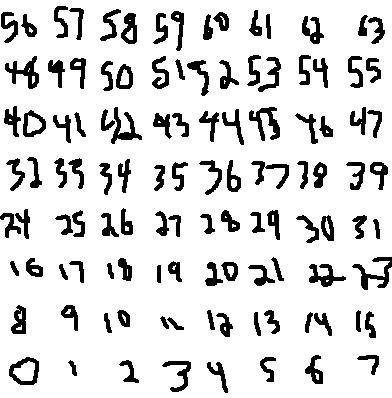 56 57 58 59 60 61 62 63
48 49 50 51 52 53 54 55
40 41 42 43 44 45 46 47
32 33 34 35 36 37 38 39
24 25 26 27 28 29 30 31
16 17 18 19 20 21 22 23
8 9 10 11 12 13 14 15
0 1 2 3 4 5 6 7